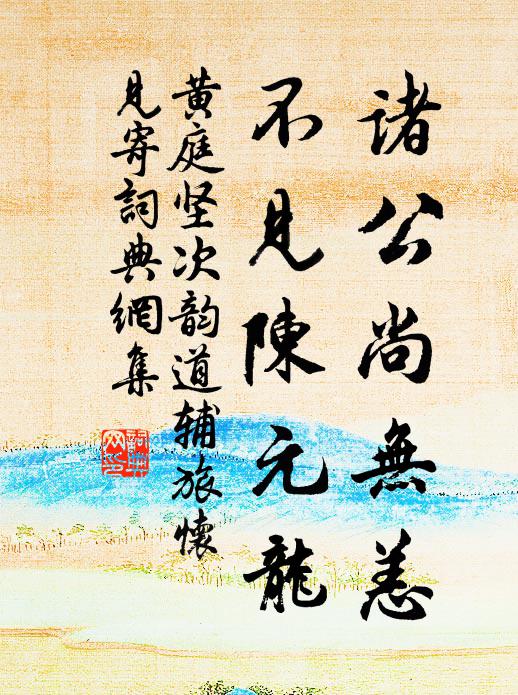 諸公尚無恙
不見陳元龍
黄庭坚次韵道辅旅懷
見寄詞典網集